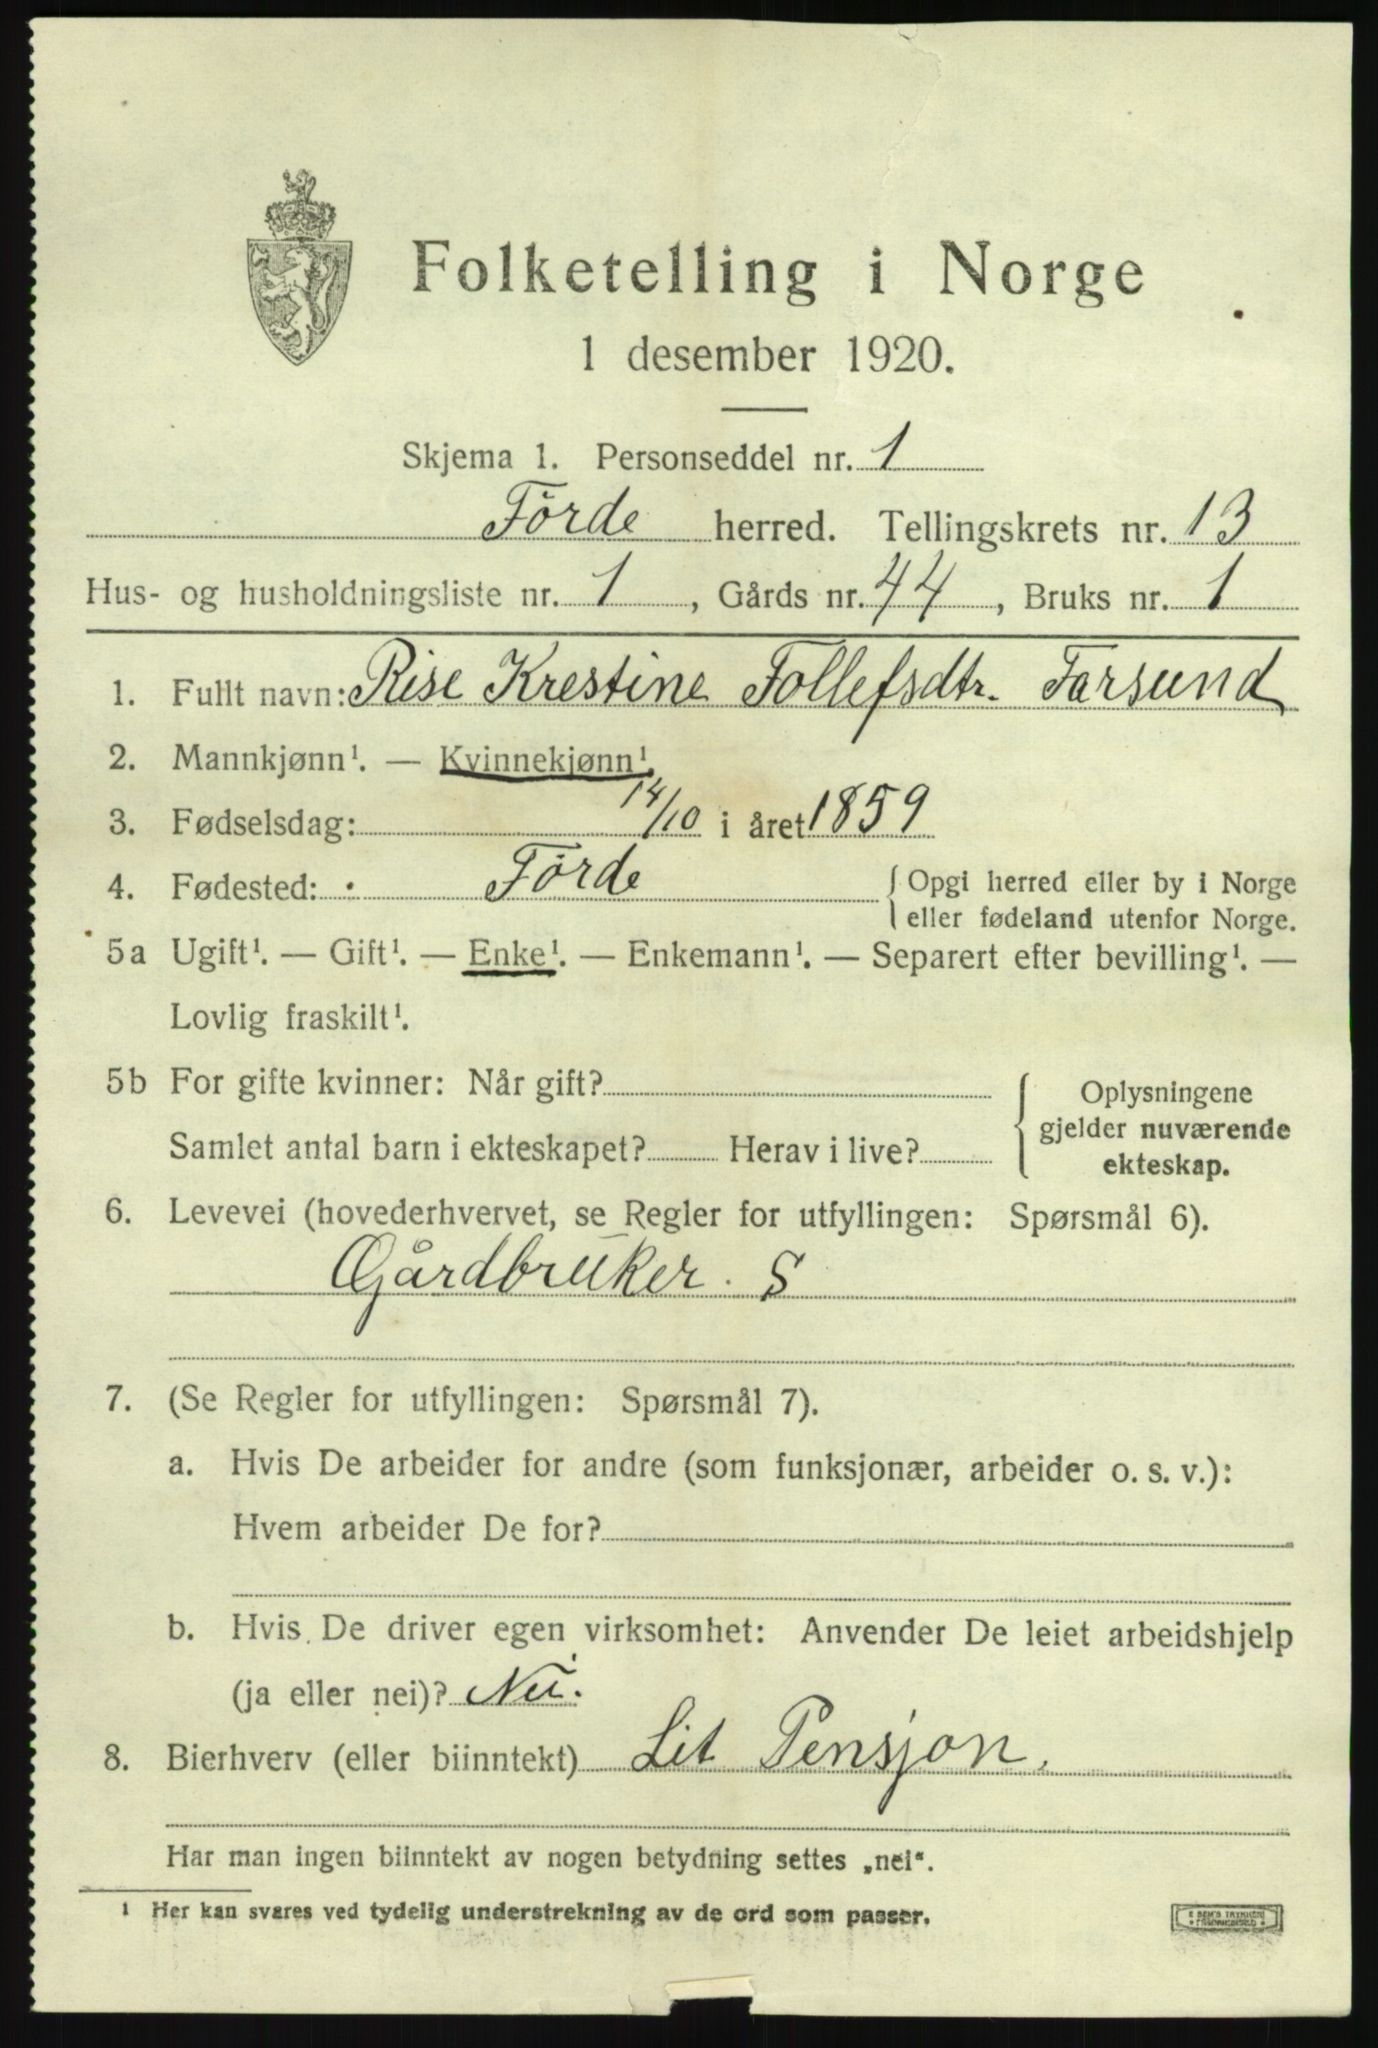 Folketelling i Norge
1 desember 1920.
Skjema 1. Personseddel nr. 1
Förde herred. Tellingskrets nr. 13
Hus- og husholdningsliste nr. 1, Gårds nr. 44, Bruks nr. 1
1. Fullt navn: Rise Krestine Tollefsdtr. Farsund
2. Mannkjønn¹. — Kvinnekjønn¹.
3. Fødselsdag: 14/10 i året 1859
4. Fødested: Förde { Opgi herred eller by i Norge
eller fødeland utenfor Norge.
5a Ugift¹. — Gift¹. — Enke¹. — Enkemann¹. — Separert efter bevilling¹. —
Lovlig fraskilt¹.
5b For gifte kvinner: Når gift?
Samlet antal barn i ekteskapet? Herav i live?
{ Oplysningene
gjelder nuværende
ekteskap.
6. Levevei (hovederhvervet, se Regler for utfyllingen: Spørsmål 6).
Gårdbruker. S
7. (Se Regler for utfyllingen: Spørsmål 7).
a. Hvis De arbeider for andre (som funksjonær, arbeider o. s. v.):
Hvem arbeider De for?
b. Hvis De driver egen virksomhet: Anvender De leiet arbeidshjelp
(ja eller nei)? Nei.
8. Bierhverv (eller biinntekt) Lit Pensjon.
Har man ingen biinntekt av nogen betydning settes „nei“.
¹ Her kan svares ved tydelig understrekning av de ord som passer.